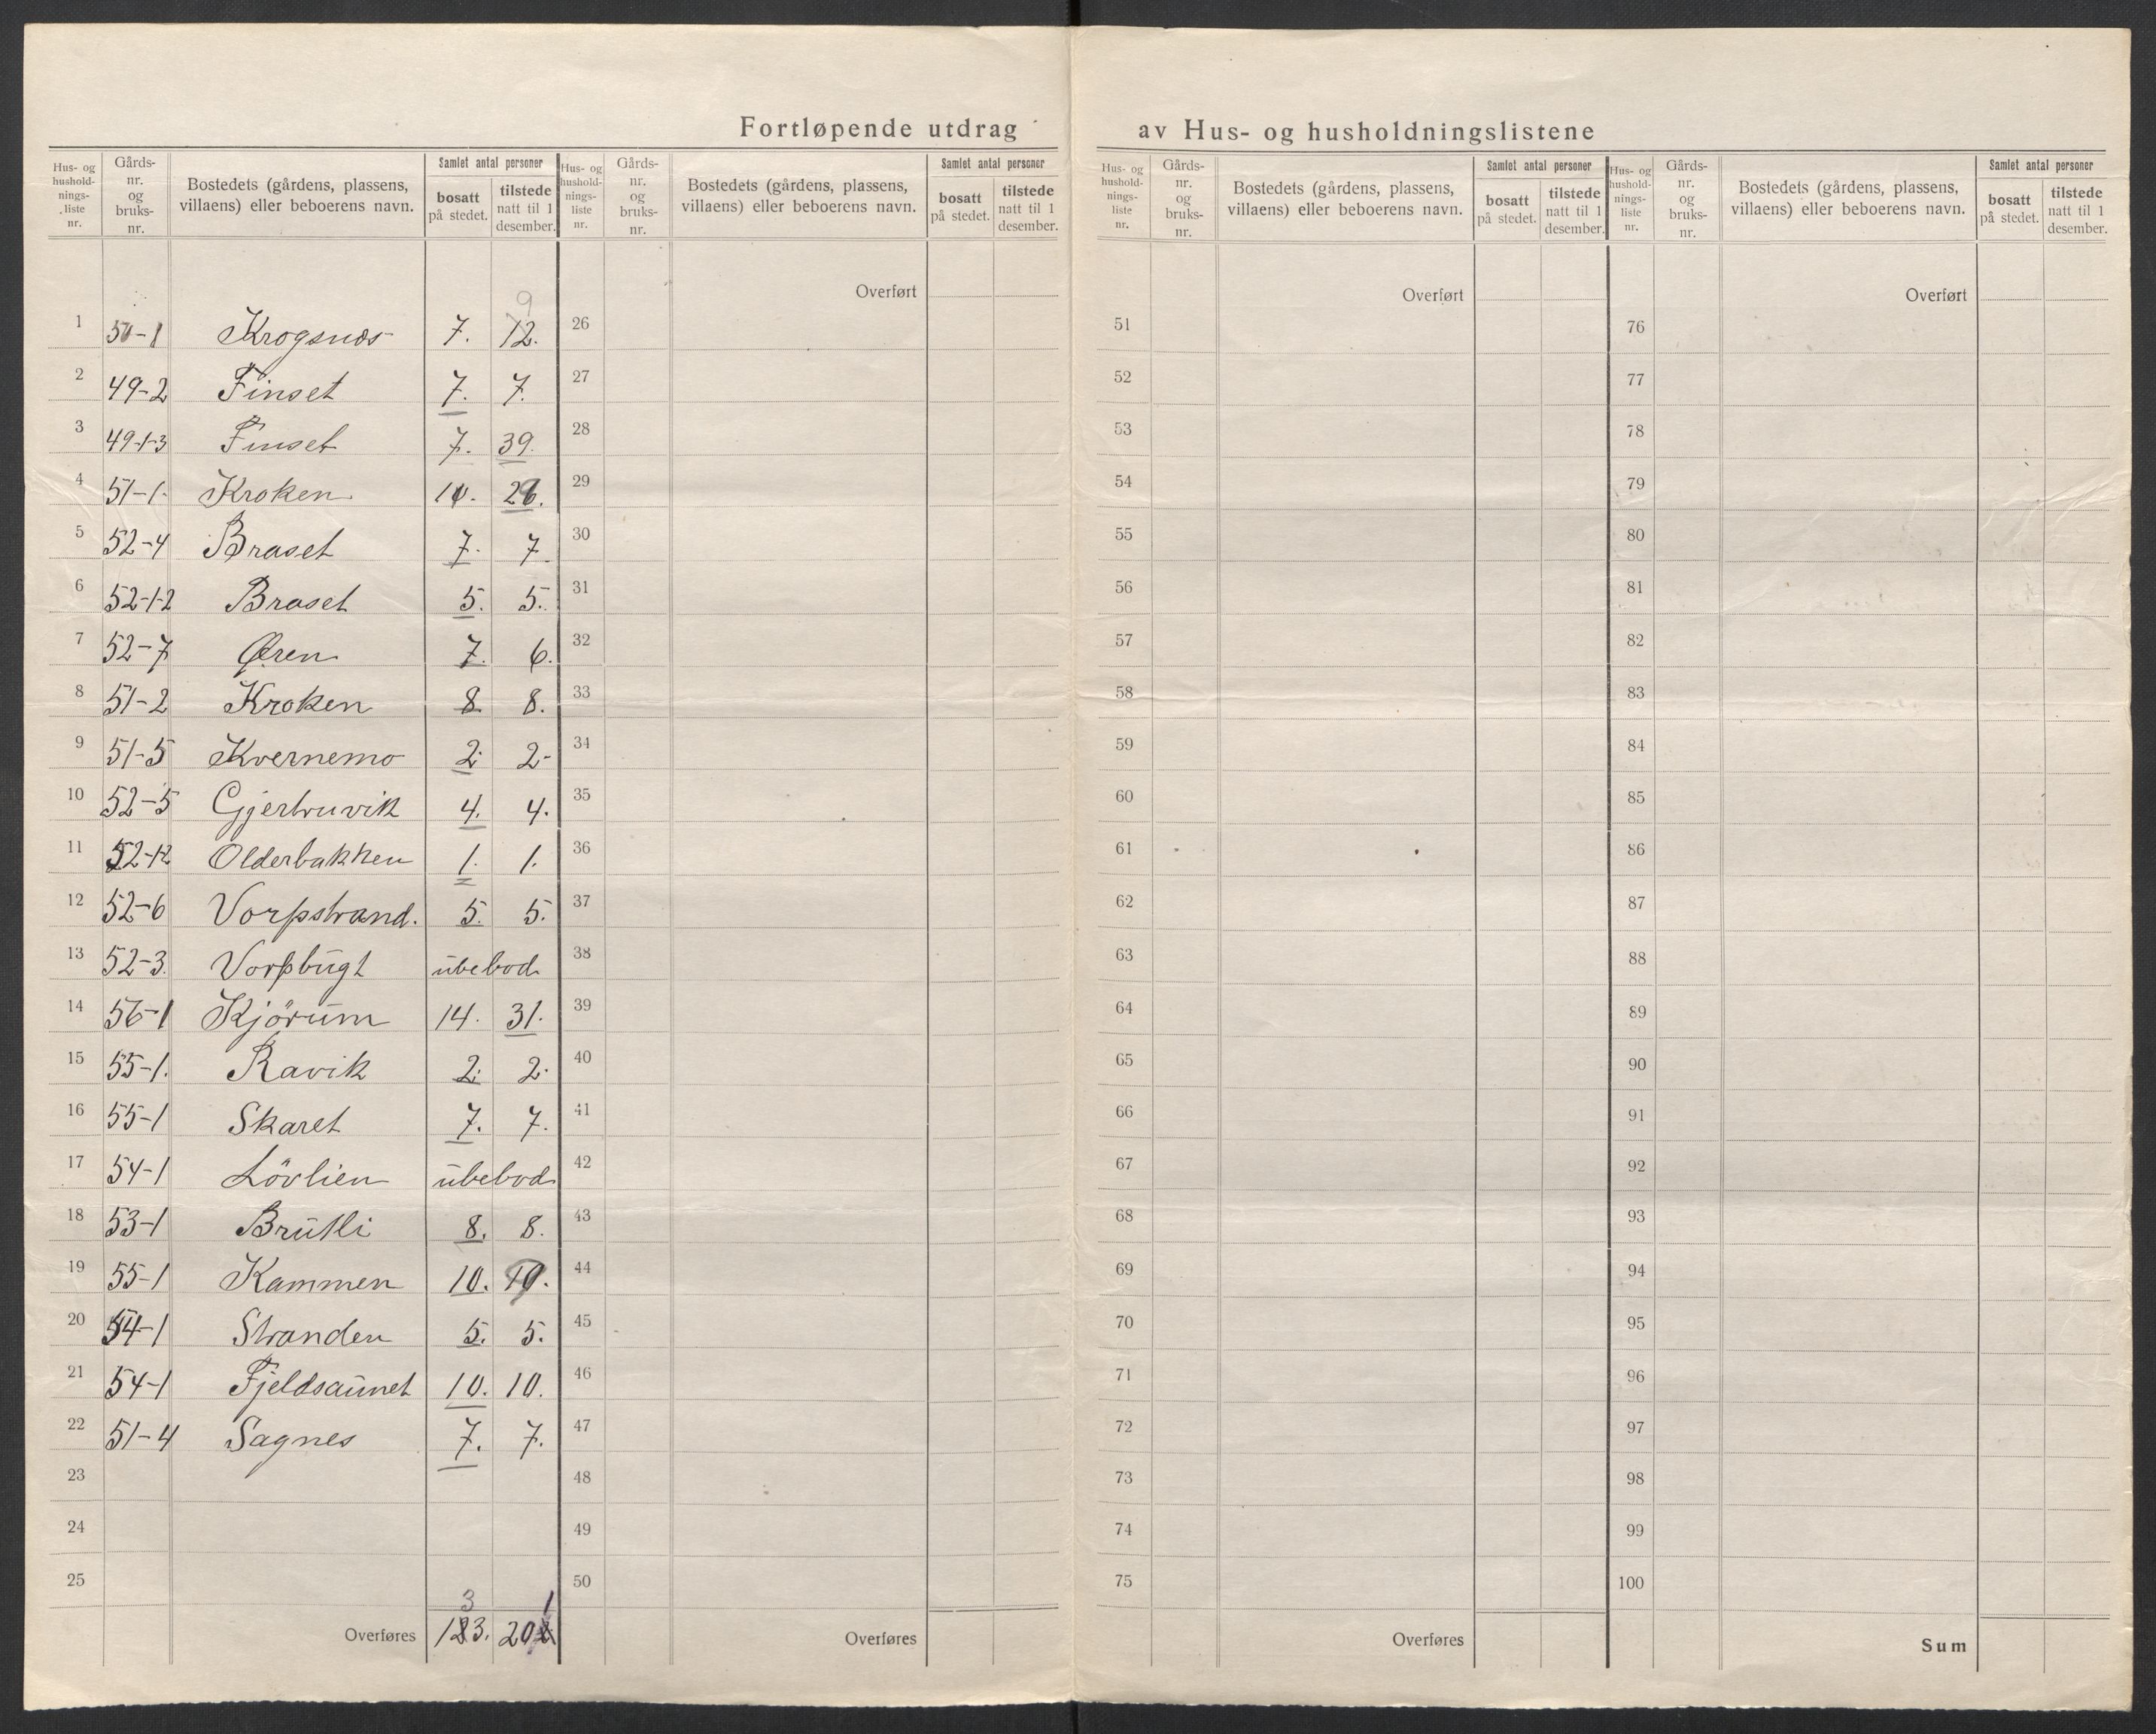 Fortløpende utdrag av Hus- og husholdningslistene
Hus- og hushold-nings-liste nr. Gårds-nr. og bruks-nr. Bostedets (gårdens, plassens, villaens) eller beboerens navn. Samlet antal personer bosatt på stedet. tilstede natt til 1 desember.
Hus- og hushold-nings-liste nr. Gårds-nr. og bruks-nr. Bostedets (gårdens, plassens, villaens) eller beboerens navn. Samlet antal personer bosatt på stedet. tilstede natt til 1 desember.
Hus- og hushold-nings-liste nr. Gårds-nr. og bruks-nr. Bostedets (gårdens, plassens, villaens) eller beboerens navn. Samlet antal personer bosatt på stedet. tilstede natt til 1 desember.
Hus- og hushold-nings-liste nr. Gårds-nr. og bruks-nr. Bostedets (gårdens, plassens, villaens) eller beboerens navn. Samlet antal personer bosatt på stedet. tilstede natt til 1 desember.
Overført Overført Overført
9
1 50-1 Krogsnæs 7. 12. 26 51 76
2 49-2 Finset 7. 7. 27 52 77
3 49-1-3 Finset 7. 39. 28 53 78
4 51-1. Kroken 10. 26. 29 54 79
5 52-4 Braset 7. 7. 30 55 80
6 52-1-2 Braset 5. 5. 31 56 81
7 52-7 Øren 7. 6. 32 57 82
8 51-2 Kroken 8 8. 33 58 83
9 51-5 Kvernemo 2. 2- 34 59 84
10 52-5 Gjertruvik 4. 4. 35 60 85
11 52-12 Olderbakken 1. 1. 36 61 86
12 52-6 Vorpstrand. 5. 5. 37 62 87
13 52-3. Vorpbugt ubebod. 38 63 88
14 56-1 Kjörum 14. 31. 39 64 89
15 55-1. Ravik 2. 2. 40 65 90
16 55-1 Skaret 7. 7. 41 66 91
17 54-1 Lövlien ubebod 42 67 92
18 53-1 Brutli 8. 8. 43 68 93
19 55-1 Kammen 10. 19. 44 69 94
20 54-1 Stranden 5. 5. 45 70 95
21 54-1 Fjeldsaunet 10. 10. 46 71 96
22 51-4 Sagnes 7. 7. 47 72 97
23 48 73 98
24 49 74 99
25 50 75 100
3 1
Overføres 123. 202 Overføres Overføres Sum